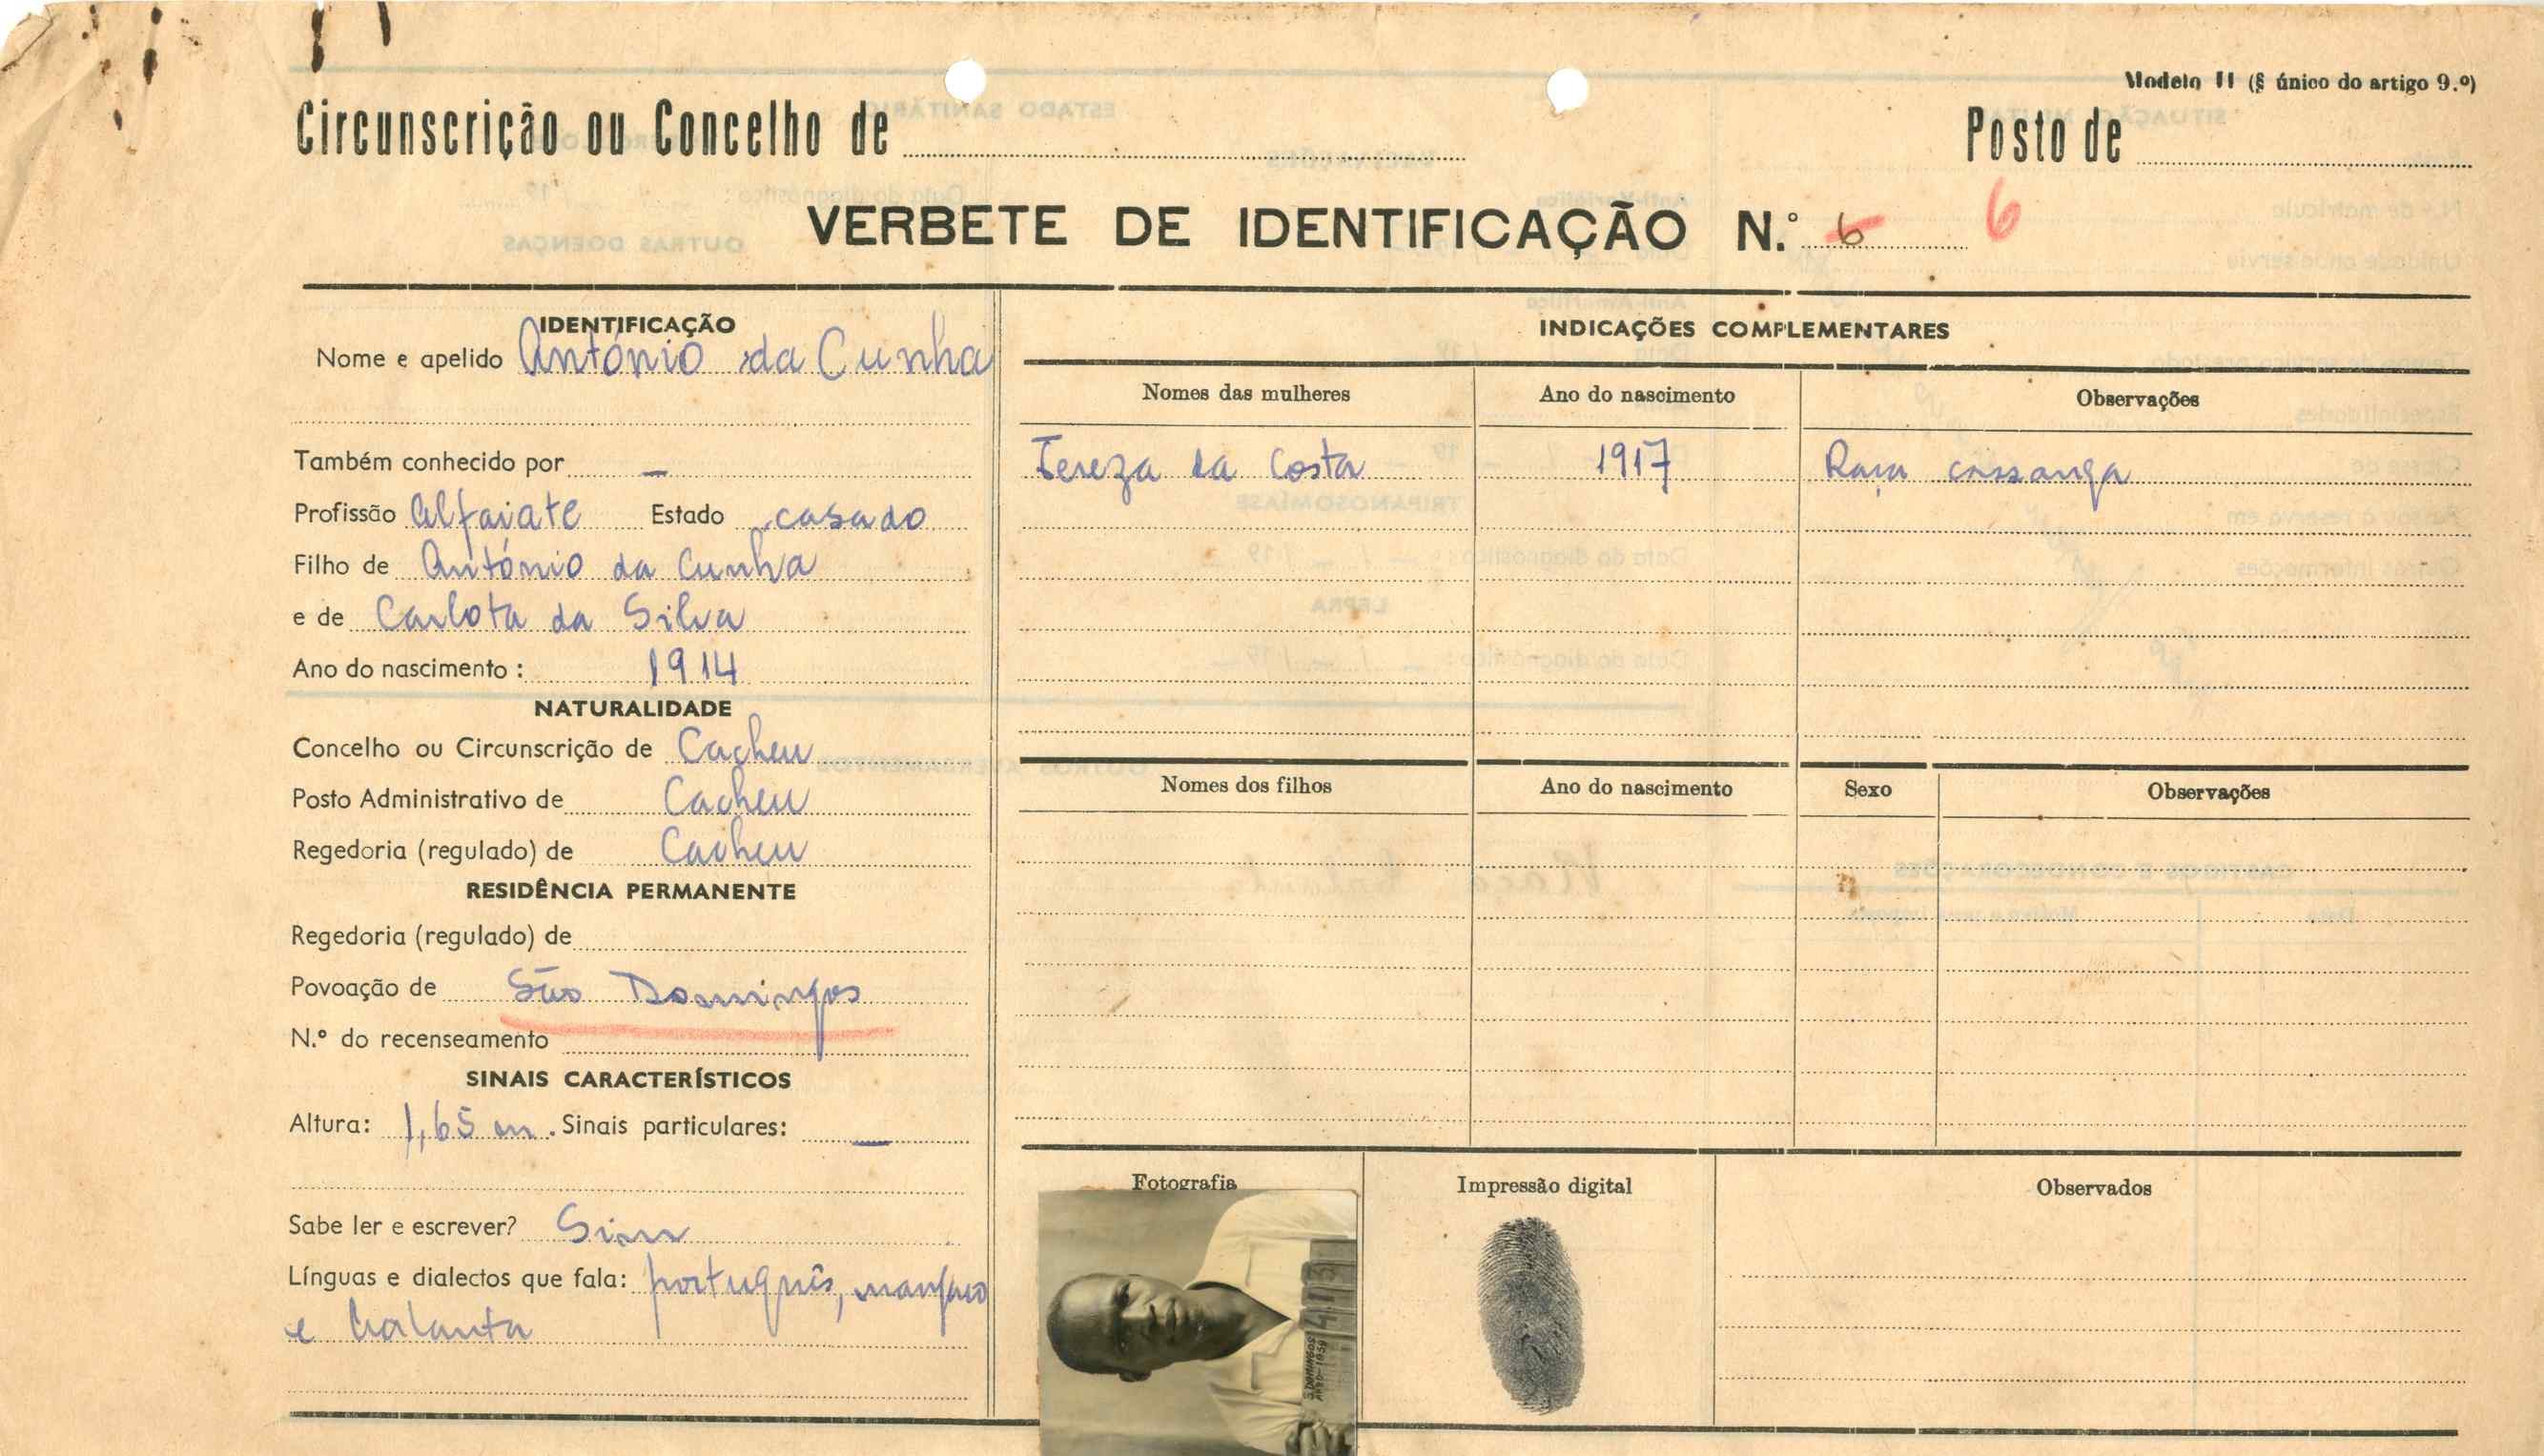 Modelo II (§ único do artigo 9.º)
Circunscrição ou Concelho de
Posto de
VERBETE DE IDENTIFICAÇÃO N.º 6 6
IDENTIFICAÇÃO
Nome e apelido António da Cunha
Também conhecido por —
Profissão Alfaiate Estado casado
Filho de António da Cunha
e de Carlota da Silva
Ano do nascimento: 1914
NATURALIDADE
Concelho ou Circunscrição de Cacheu
Posto Administrativo de Cacheu
Regedoria (regulado) de Cacheu
RESIDÊNCIA PERMANENTE
Regedoria (regulado) de
Povoação de São Domingos
N.º do recenseamento
SINAIS CARACTERÍSTICOS
Altura: 1,65 m. Sinais particulares: —
Sabe ler e escrever? Sim
Línguas e dialectos que fala: português, manjaco
e balanta
INDICAÇÕES COMPLEMENTARES
Nomes das mulheres Ano do nascimento Observações
Tereza da Costa 1917 Raça cassanga
Nomes dos filhos Ano do nascimento Sexo Observações
Fotografia Impressão digital Observados
S. DOMINGOS